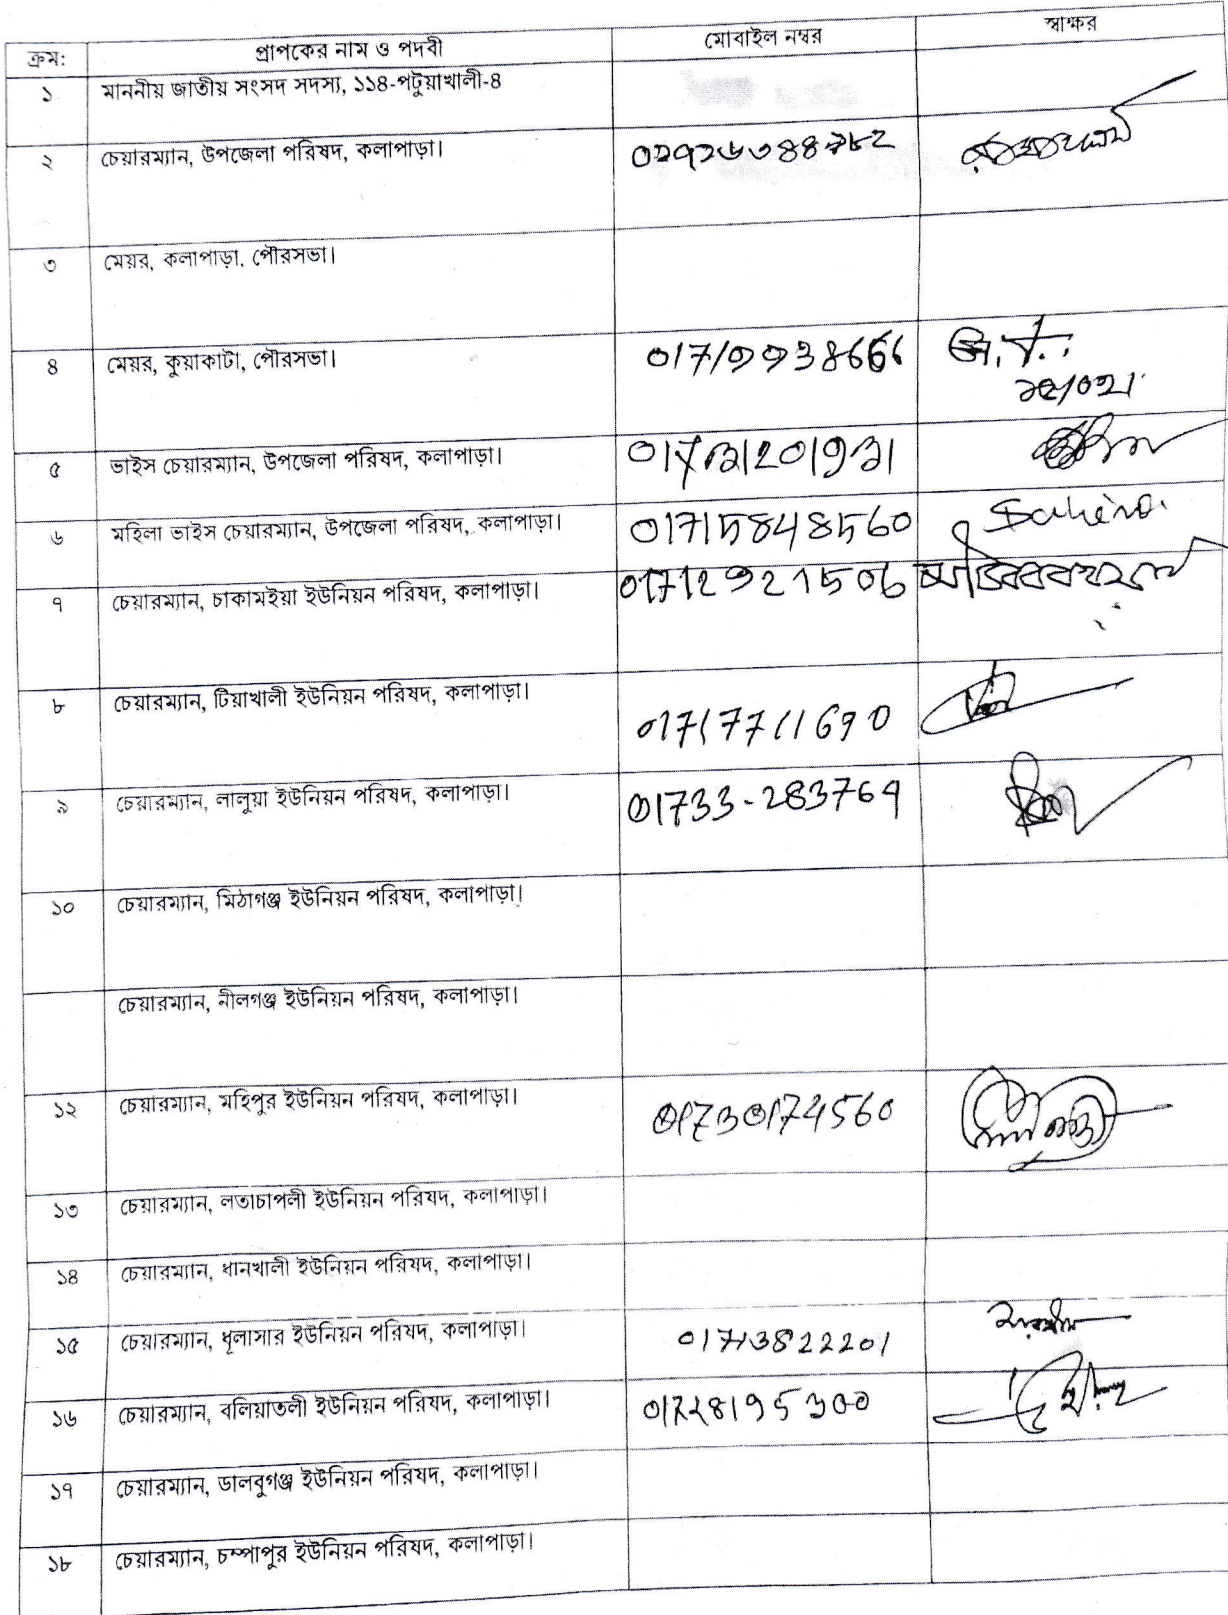 ক্রম: প্রাপকের নাম ও পদবী মোবাইল নম্বর স্বাক্ষর
১ মাননীয় জাতীয় সংসদ সদস্য, ১১৪-পটুয়াখালী-৪
২ চেয়ারম্যান, উপজেলা পরিষদ, কলাপাড়া।
৩ মেয়র, কলাপাড়া, পৌরসভা।
৪ মেয়র, কুয়াকাটা, পৌরসভা।
৫ ভাইস চেয়ারম্যান, উপজেলা পরিষদ, কলাপাড়া।
৬ মহিলা ভাইস চেয়ারম্যান, উপজেলা পরিষদ, কলাপাড়া। 01715848560
৭ চেয়ারম্যান, চাকামইয়া ইউনিয়ন পরিষদ, কলাপাড়া। 01712921506
৮ চেয়ারম্যান, টিয়াখালী ইউনিয়ন পরিষদ, কলাপাড়া। 01717711690
৯ চেয়ারম্যান, লালুয়া ইউনিয়ন পরিষদ, কলাপাড়া। 01733-283769
১০ চেয়ারম্যান, মিঠাগঞ্জ ইউনিয়ন পরিষদ, কলাপাড়া।
চেয়ারম্যান, নীলগঞ্জ ইউনিয়ন পরিষদ, কলাপাড়া।
১২ চেয়ারম্যান, মহিপুর ইউনিয়ন পরিষদ, কলাপাড়া। 01730174560
১৩ চেয়ারম্যান, লতাচাপলী ইউনিয়ন পরিষদ, কলাপাড়া।
১৪ চেয়ারম্যান, ধানখালী ইউনিয়ন পরিষদ, কলাপাড়া।
১৫ চেয়ারম্যান, ধূলাসার ইউনিয়ন পরিষদ, কলাপাড়া। 01713822201
১৬ চেয়ারম্যান, বলিয়াতলী ইউনিয়ন পরিষদ, কলাপাড়া।
১৭ চেয়ারম্যান, ডালবুগঞ্জ ইউনিয়ন পরিষদ, কলাপাড়া।
১৮ চেয়ারম্যান, চম্পাপুর ইউনিয়ন পরিষদ, কলাপাড়া।